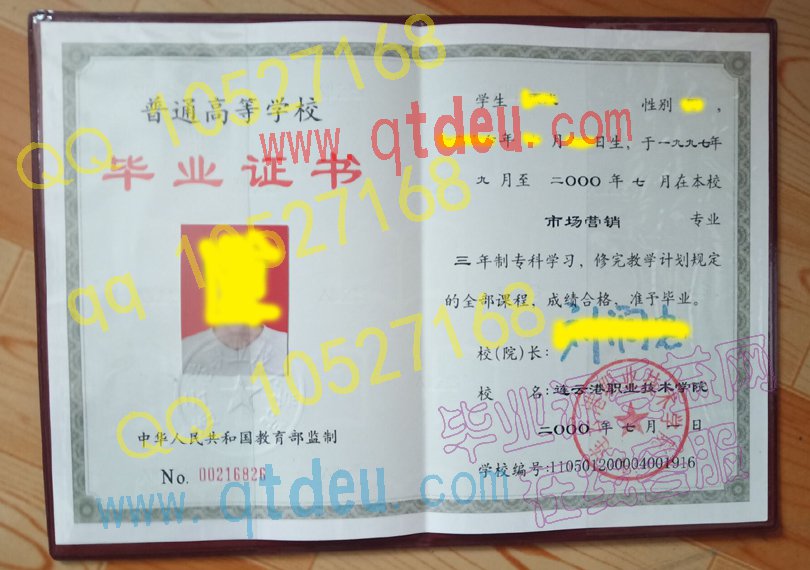 普通高等学校
毕业证书
中华人民共和国教育部监制
No. 00216826
学生 性别 ，
年 月 日生，于一九九七年
九 月至 二〇〇〇 年 七 月在本校
市场营销 专业
三 年制专科学习，修完教学计划规定
的全部课程，成绩合格，准予毕业。
校(院)长:
校 名: 连云港职业技术学院
二〇〇〇 年 七 月 一 日
学校编号: 110501200004001916
QQ 10527168
www.qtdeu.com
qq 10527168
QQ 10527168
www.qtdeu.com
在线客服